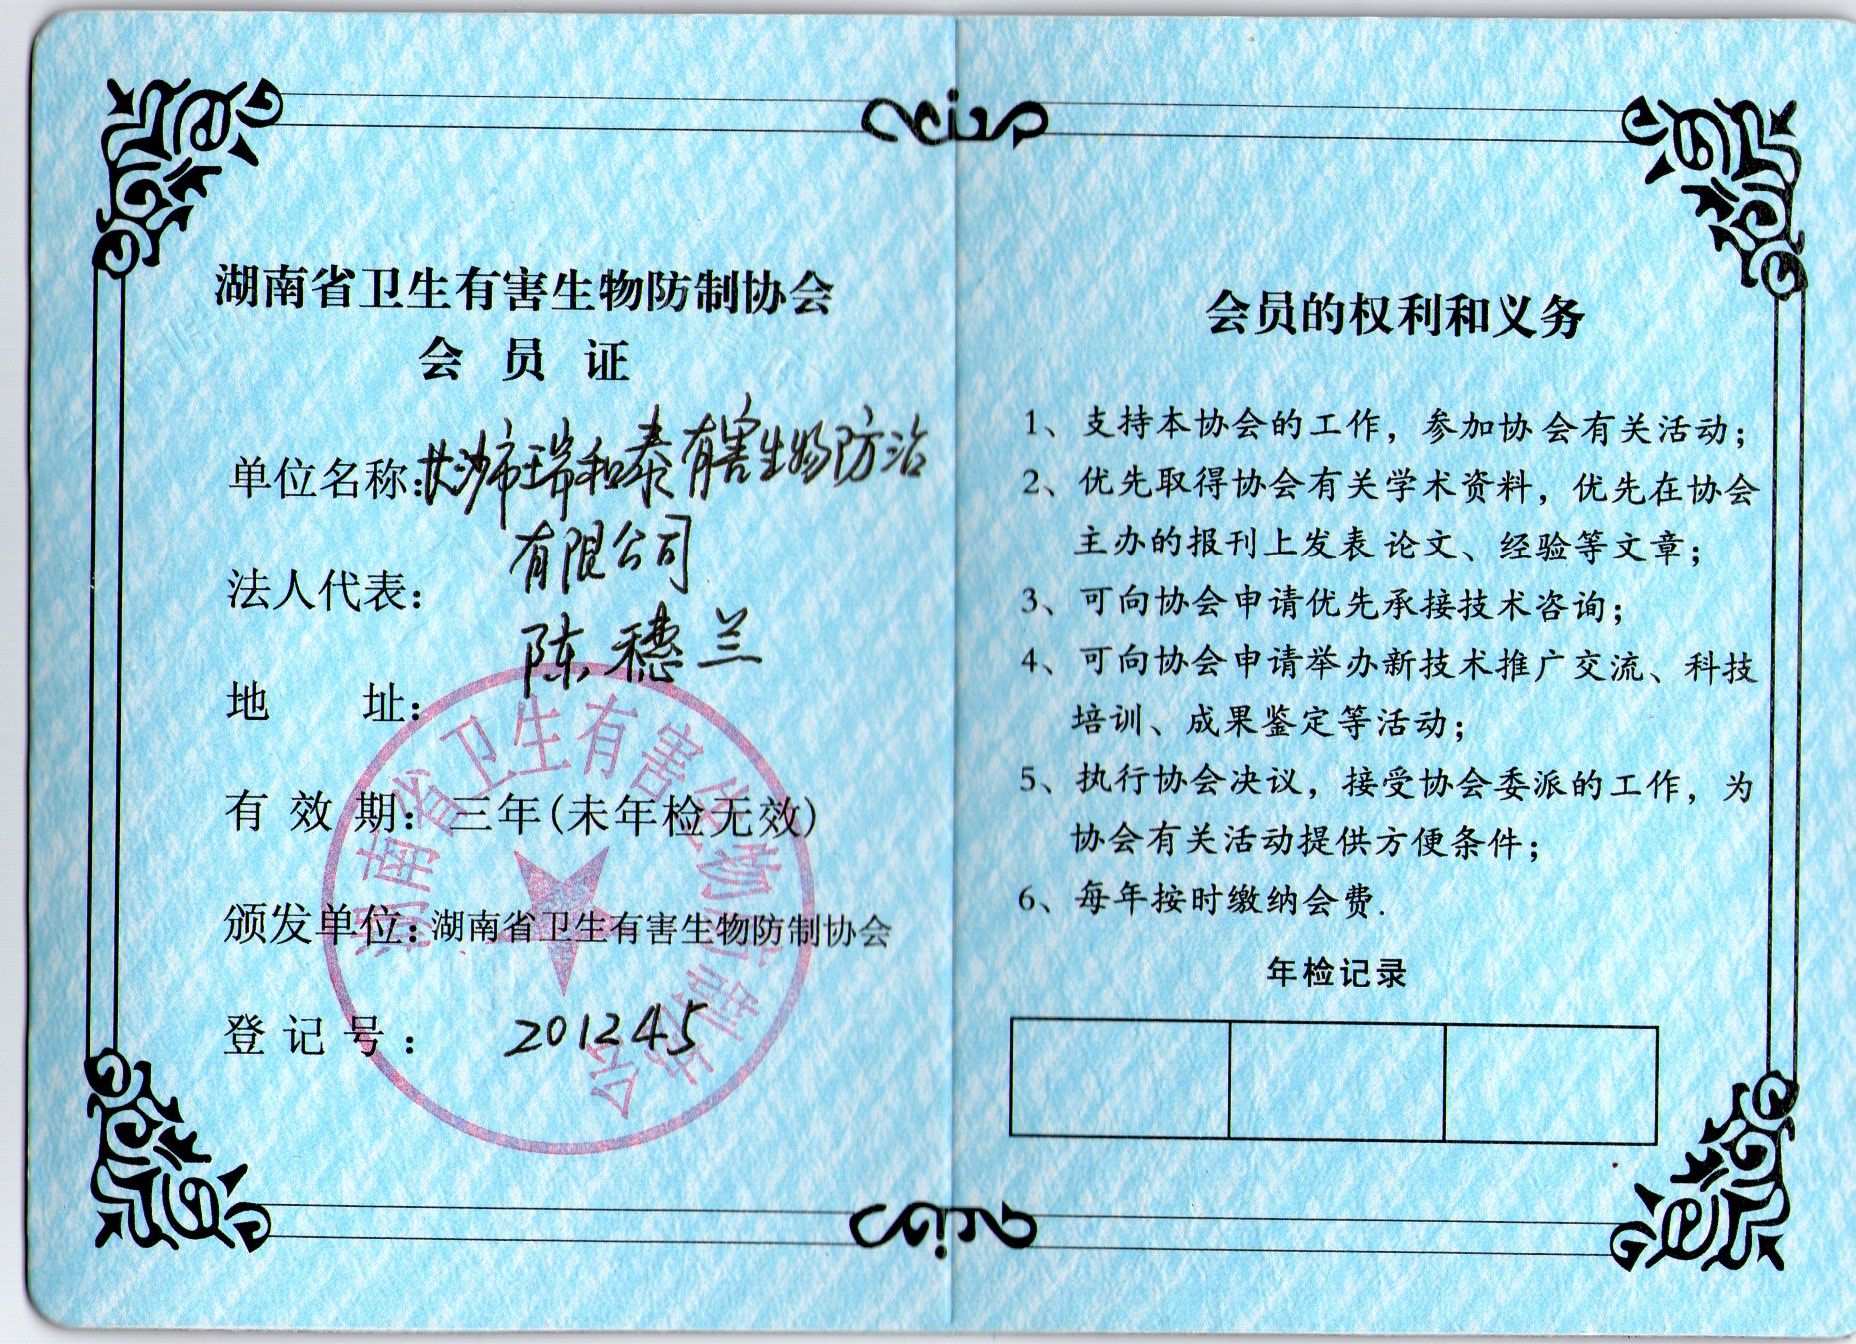 湖南省卫生有害生物防制协会
会员证
单位名称：长沙市瑞和泰有害生物防治
有限公司
法人代表：
陈穗兰
地址：
有效期：三年(未年检无效)
颁发单位：湖南省卫生有害生物防制协会
登记号：201245
湖南省卫生有害生物防制协会
会员的权利和义务
1、支持本协会的工作，参加协会有关活动；
2、优先取得协会有关学术资料，优先在协会
主办的报刊上发表论文、经验等文章；
3、可向协会申请优先承接技术咨询；
4、可向协会申请举办新技术推广交流、科技
培训、成果鉴定等活动；
5、执行协会决议，接受协会委派的工作，为
协会有关活动提供方便条件；
6、每年按时缴纳会费.
年检记录